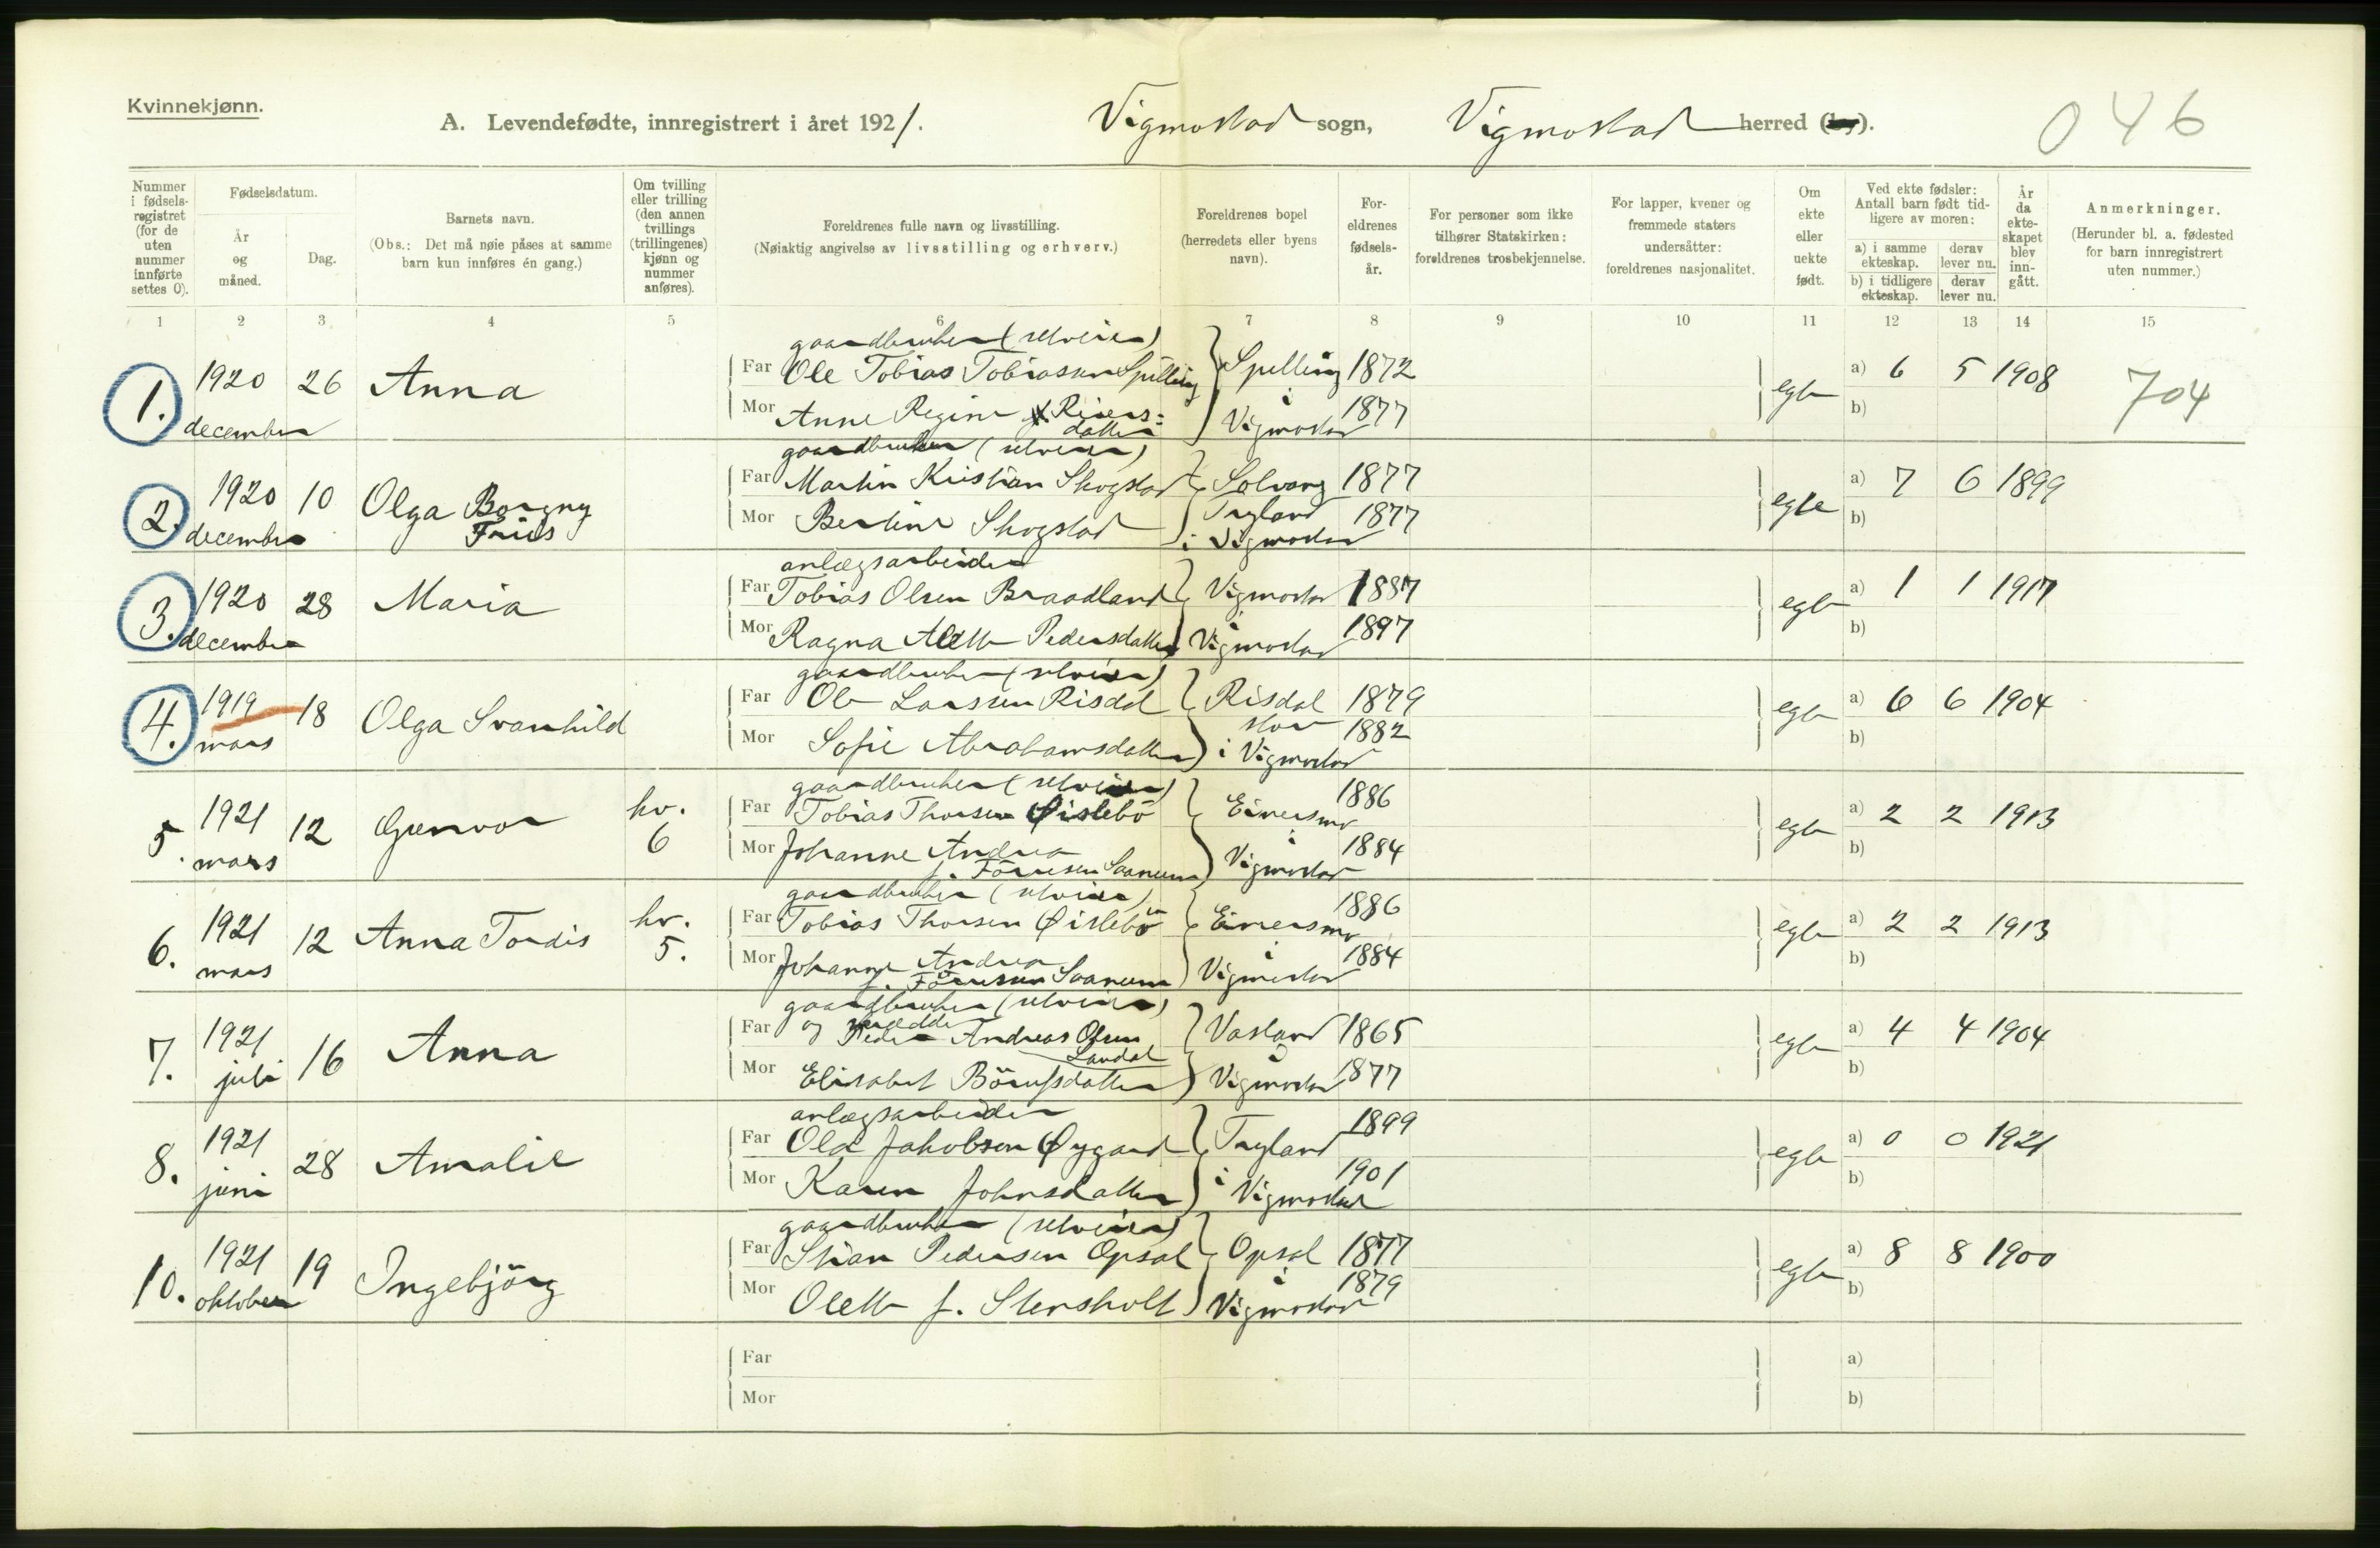 Kvinnekjønn.
A. Levendefødte, innregistrert i året 1921. Vigmostad sogn, Vigmostad herred (by).
046
Nummer i fødsels-registret (for de uten nummer innførte settes 0).
Fødselsdatum.
År og måned.
Dag.
Barnets navn.
(Obs.: Det må nøie påses at samme barn kun innføres én gang.)
Om tvilling eller trilling (den annen tvillings (trillingenes) kjønn og nummer anføres).
Foreldrenes fulle navn og livsstilling.
(Nøiaktig angivelse av livsstilling og erhverv.)
Foreldrenes bopel (herredets eller byens navn).
For-eldrenes fødsels-år.
For personer som ikke tilhører Statskirken: foreldrenes trosbekjennelse.
For lapper, kvener og fremmede staters undersåtter: foreldrenes nasjonalitet.
Om ekte eller uekte født.
Ved ekte fødsler: Antall barn født tid-ligere av moren:
a) i samme ekteskap.
derav lever nu.
b) i tidligere ekteskap.
derav lever nu.
År da ekte-skapet blev inn-gått.
Anmerkninger.
(Herunder bl. a. fødested for barn innregistrert uten nummer.)
1 2 3 4 5 6 7 8 9 10 11 12 13 14 15
gaardbruker (selveier)
1. 1920 december 26 Anna
Far Ole Tobias Tobiassen Spilling Spilling 1872
Mor Anne Regine Reiersdatter i Vigmostad 1877
egte a) 6 5 1908 b)
704
gaardbruker (selveier)
2. 1920 december 10 Olga Borgny Friis
Far Martin Kristian Skogstad Solvang 1877
Mor Bertine Skogstad Trygland i Vigmostad 1877
egte a) 7 6 1899 b)
anlægsarbeider
3. 1920 december 28 Maria
Far Tobias Olsen Braadland Vigmostad 1887
Mor Ragna Alette Pedersdatter i Vigmostad 1897
egte a) 1 1 1917 b)
gaardbruker (selveier)
4. 1919 mars 18 Olga Svanhild
Far Ole Larssen Risdal Risdal 1879
Mor Sofie Abrahamsdatter stor i Vigmostad 1882
egte a) 6 6 1904 b)
gaardbruker (selveier)
5. 1921 mars 12 Gunvor kv. 6
Far Tobias Thorsen Øislebö Einersmo 1886
Mor Johanne Andrea f. Tönnesen Saanum i Vigmostad 1884
egte a) 2 2 1913 b)
gaardbruker (selveier)
6. 1921 mars 12 Anna Tordis kv. 5.
Far Tobias Thorsen Øislebö Einersmo 1886
Mor Johanne Andrea f. Tönnesen Saanum i Vigmostad 1884
egte a) 2 2 1913 b)
gaardbruker (selveier)
7. 1921 juli 16 Anna
Far og Peder Andreas Olsen Landal Vasland 1865
Mor Elisabet Börufsdatter i Vigmostad 1877
egte a) 4 4 1904 b)
anlægsarbeider
8. 1921 juni 28 Amalie
Far Olai Jakobsen Øygard Trygland 1899
Mor Karen Johnsdatter i Vigmostad 1901
egte a) 0 0 1921 b)
gaardbruker (selveier)
10. 1921 oktober 19 Ingebjörg
Far Stian Pedersen Opsal Opsal 1877
Mor Olette f. Stensholt i Vigmostad 1879
egte a) 8 8 1900 b)
Far a)
Mor b)